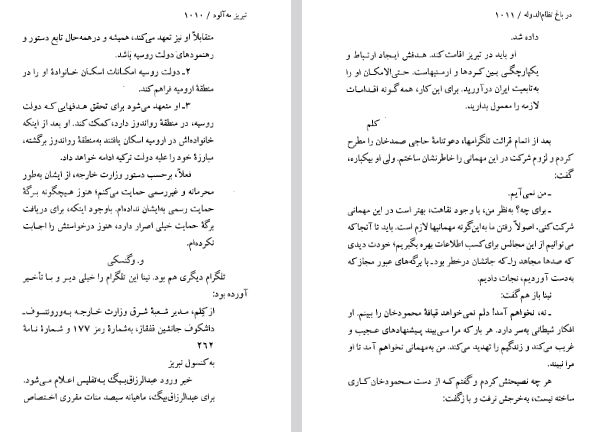 تبریز مه‌آلود / ۱۰۱۰
متقابلاً او نیز تعهد می‌کند، همیشه و درهمه‌حال تابع دستور و
رهنمودهای دولت روسیه باشد.
۲ـ دولت روسیه امکانات اسکان خانوادهٔ او را در
منطقهٔ ارومیه فراهم کند.
۳ـ او متعهد می‌شود برای تحقق هدفهایی که دولت
روسیه، در منطقهٔ رواندوز دارد، کمک کند. او بعد از اینکه
خانواده‌اش در ارومیه اسکان یافتند به‌منطقهٔ رواندوز برگشته،
مبارزهٔ خود را علیه دولت ترکیه ادامه خواهد داد.
فعلاً، برحسب دستور وزارت خارجه، از ایشان به‌طور
محرمانه و غیررسمی حمایت می‌کنم؛ هنوز هیچگونه برگهٔ
حمایت رسمی به‌ایشان نداده‌ام. باوجود اینکه، برای دریافت
برگهٔ حمایت خیلی اصرار دارد، هنوز درخواستش را اجابت
نکرده‌ام.
و. وگنسکی
تلگرام دیگری هم بود. نینا این تلگرام را خیلی دیر و با تأخیر
آورده بود:
از کلِم، مدیر شعبهٔ شرق وزارت خارجه به‌ورونتسوف-
داشکوف جانشین قفقاز، به‌شمارهٔ رمز ۱۷۷ و شمارهٔ نامهٔ
۲۶۲
به‌کنسول تبریز
خبر ورود عبدالرزاق‌بیگ به‌تفلیس اعلام می‌شود.
برای عبدالرزاق‌بیگ، ماهیانه سیصد منات مقرری اختصاص
در باغ نظام‌الدوله / ۱۰۱۱
داده شد.
او باید در تبریز اقامت کند. هدفش ایجاد ارتباط و
یکپارچگی بین کردها و ارمنیهاست. حتی‌الامکان او را
به‌تابعیت ایران درآورید. برای این کار، همه گونه اقدامات
لازمه را معمول بدارید.
کلم
بعد از اتمام قرائت تلگرامها، دعوتنامهٔ حاجی صمدخان را مطرح
کردم و لزوم شرکت در این مهمانی را خاطرنشان ساختم. ولی او بیکباره،
گفت:
ـ من نمی‌آیم.
ـ برای چه؟ به‌نظر من، با وجود نقاهت، بهتر است در این مهمانی
شرکت کنی. اصولاً رفتن ما به‌این‌گونه مهمانیها لازم است. باید تا آنجا که
می‌توانیم از این مجالس برای کسب اطلاعات بهره بگیریم؛ خودت دیدی
که صدها مجاهد را، که جانشان درخطر بود ـ با برگه‌های عبور مجاز که
به‌دست آوردیم، نجات دادیم.
نینا باز هم گفت:
ـ نه، نخواهم آمد! دلم نمی‌خواهد قیافهٔ محمودخان را ببینم. او
افکار شیطانی به‌سر دارد. هر بار که مرا می‌بیند پیشنهادهای عجیب و
غریب می‌کند و زندگیم را تهدید می‌کند. من به‌مهمانی نخواهم آمد تا او
مرا نبیند.
هر چه نصیحتش کردم و گفتم که از دست محمودخان کاری
ساخته نیست، به‌خرجش نرفت و بازگفت: